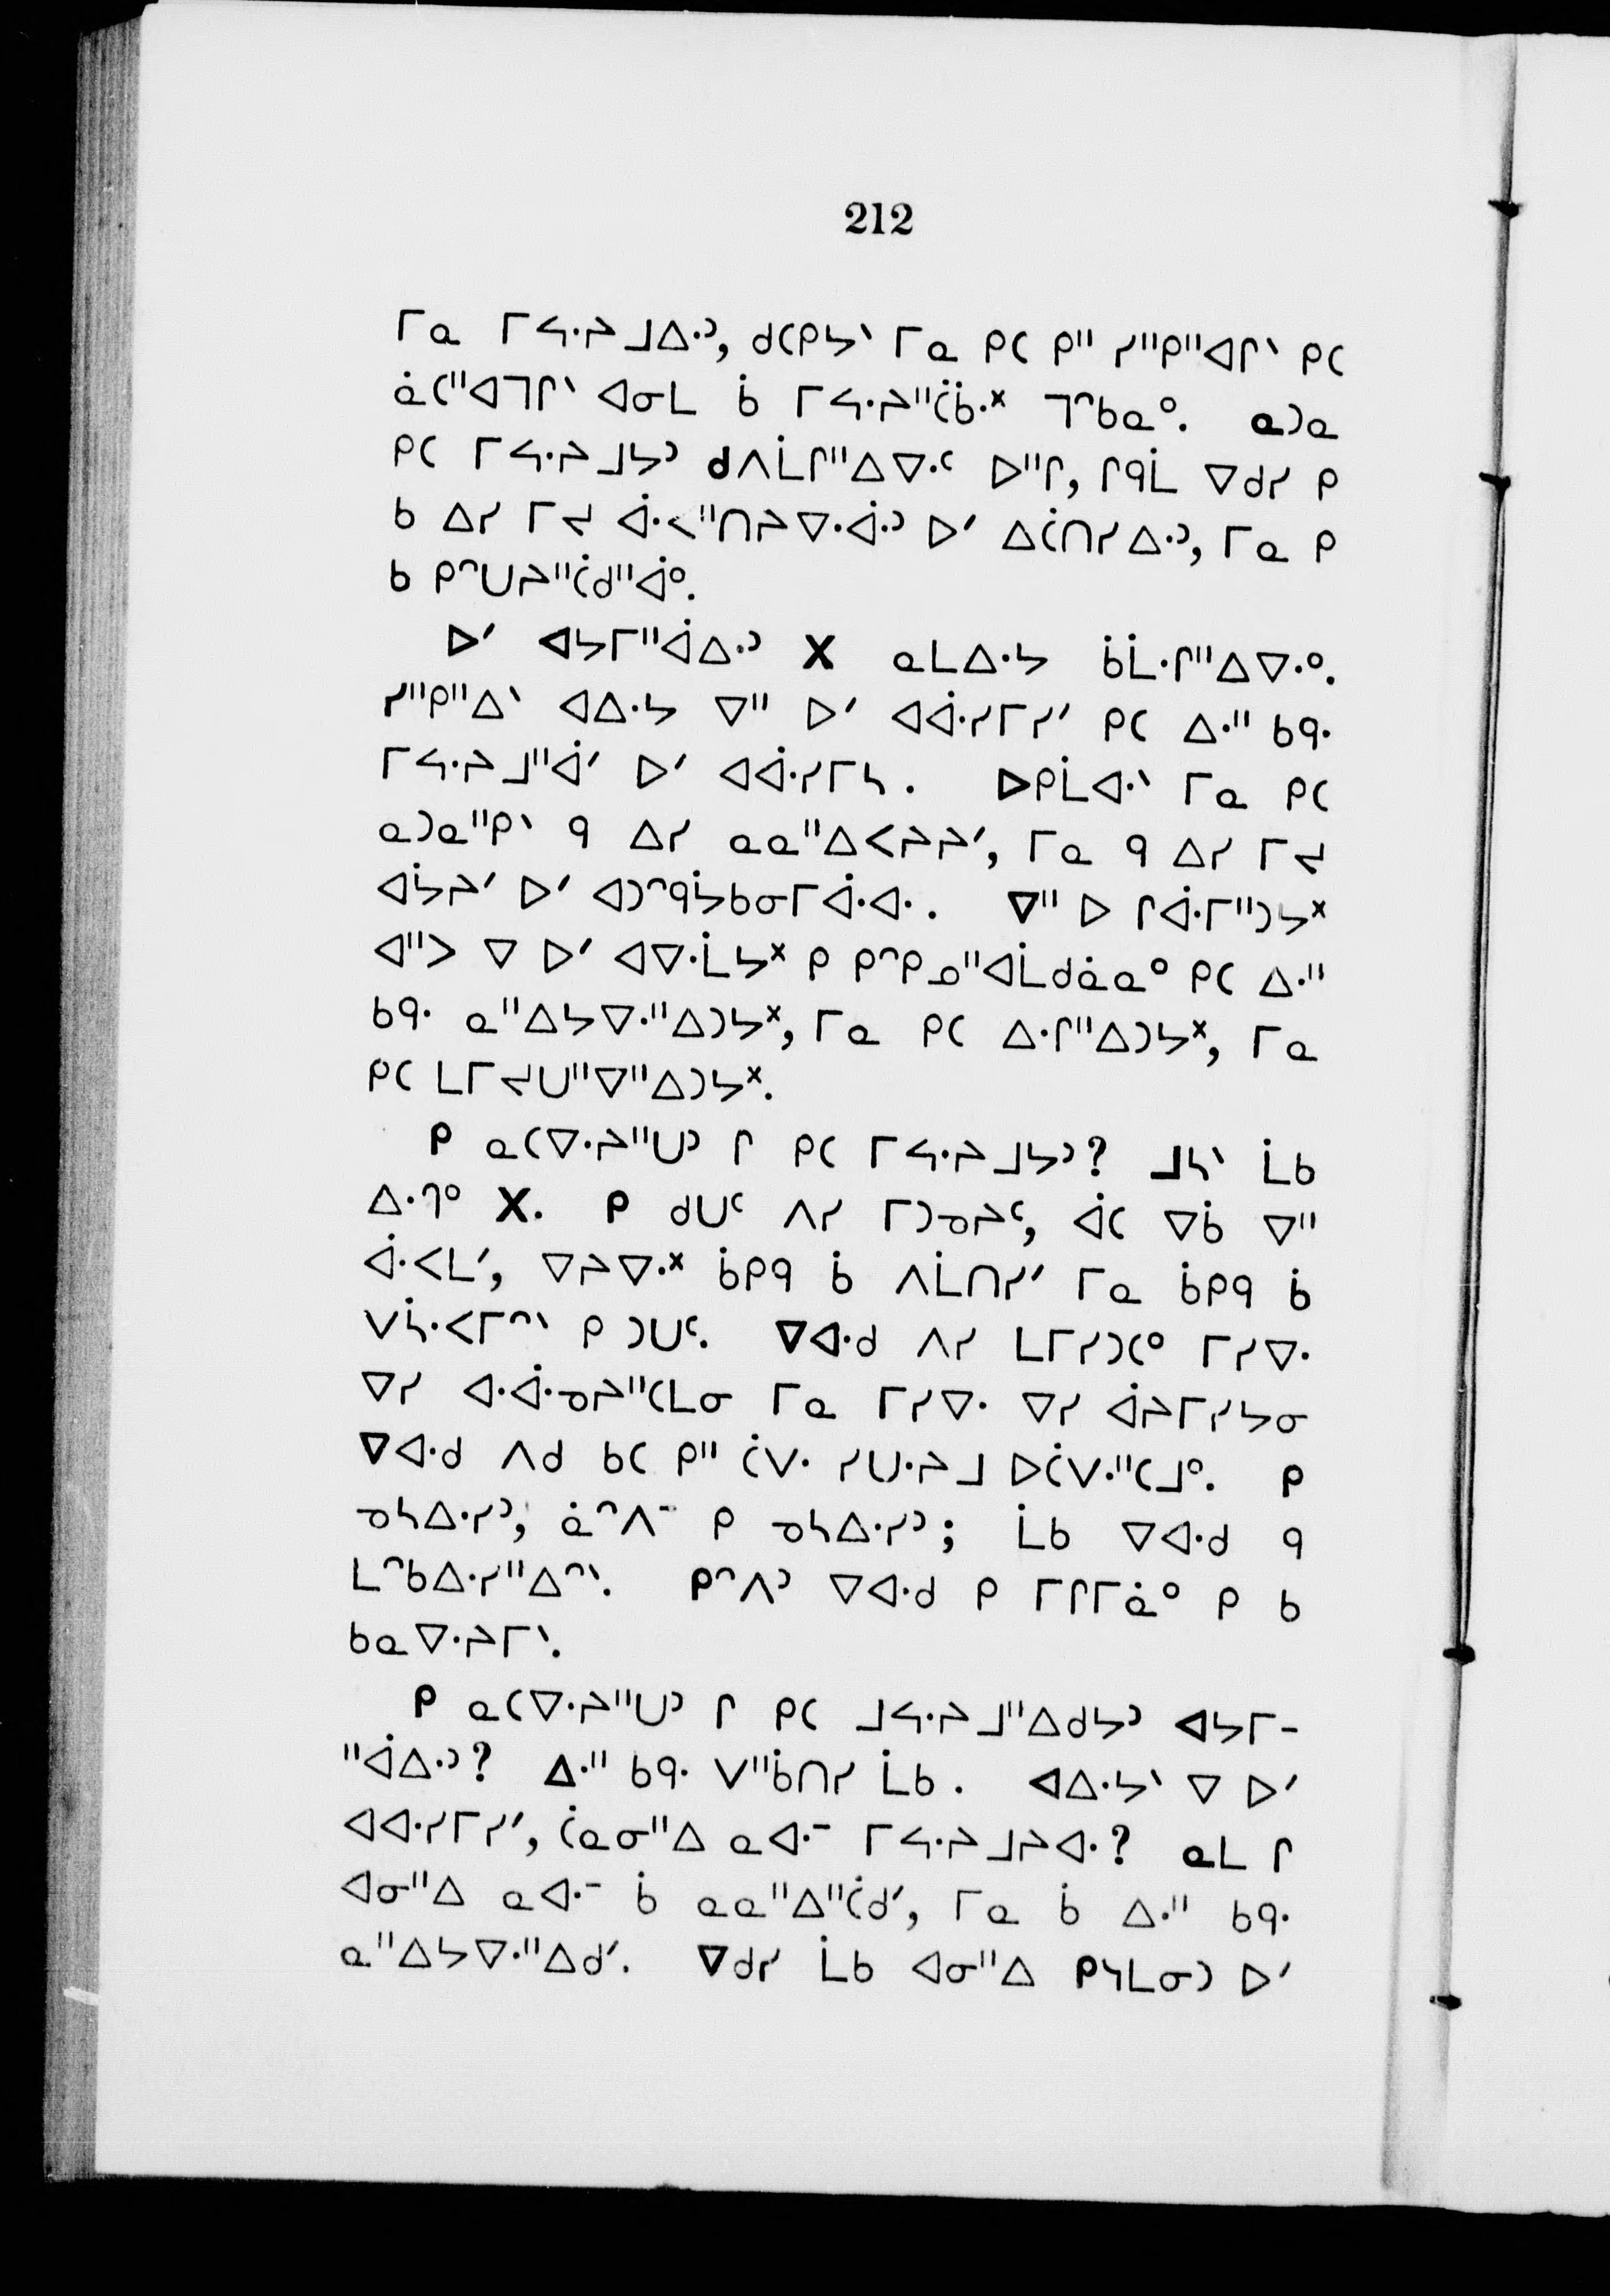 212
ᒥᓇ ᒥᔦᐧᔨᒧᐃᐧᐣ, ᑯᑕᑭᔭᐠ ᒥᓇ ᑭᑕ ᑭᐦ ᓯᐦᑭᐦᐊᒋᐠ ᑭᑕ
ᓈᑕᐦᐊᒣᒋᐠ ᐊᓂᒪ ᑳ ᒥᔦᐧᔨᐦᑖᑳᐧᕽ ᒣᐢᑲᓇᐤ. ᓇᑐᓇ
ᑭᑕ ᒥᔦᐧᔨᒧᔭᐣ ᑯᐱᒫᒋᐦᐃᐁᐧᑦ ᐅᐦᒋ, ᒋᑫᒫ ᐁᑯᓯ ᑭ
ᑲ ᐃᓯ ᒥᔪ ᐋᐧᐸᐦᑎᔨᐁᐧᐋᐧᐣ ᐅᐟ ᐃᑖᑎᓯᐃᐧᐣ, ᒥᓇ ᑭ
ᑲ ᑭᐢᑌᔨᐦᑖᑯᐦᐋᐤ.
ᐅᐟ ᐊᔭᒥᐦᐋᐃᐧᐣ X ᓇᒪᐃᐧᔭ ᑳᒫᐧᒋᐦᐃᐁᐧᐤ.
ᓯᐦᑭᐦᐃᐠ ᐊᐃᐧᔭ ᐁᐦ ᐅᐟ ᐊᐋᐧᓯᒥᓯᐟ ᑭᑕ ᐃᐧᐦ ᑲᑫᐧ
ᒥᔦᐧᔨᒧᐦᐋᐟ ᐅᐟ ᐊᐋᐧᓯᒥᓴ. ᐅᑭᒫᐊᐧᐠ ᒥᓇ ᑭᑕ
ᓇᑐᓇᐦᑭᐠ ᑫ ᐃᓯ ᓇᓇᐦᐃᐸᔨᔨᐟ, ᒥᓇ ᑫ ᐃᓯ ᒥᔪ
ᐊᔮᔨᐟ ᐅᐟ ᐊᑐᐢᑫᔮᑲᓂᒥᐋᐧᐊᐧ. ᐁᐦ ᐅ ᒋᐋᐧᒥᐦᑐᔭᕽ
ᐊᐦᐳ ᐁ ᐅᐟ ᐊᐁᐧᒫᔭᕽ ᑭ ᑭᐢᑭᓄᐦᐊᒫᑯᓈᓇᐤ ᑭᑕ ᐃᐧᐦ
ᑲᑫᐧ ᓇᐦᐃᔭᐁᐧᐦᐃᑐᔭᕽ, ᒥᓇ ᑭᑕ ᐃᐧᒋᐦᐃᑐᔭᕽ, ᒥᓇ
ᑭᑕ ᒪᒥᔪᑌᐦᐁᐦᐃᑐᔭᕽ.
ᑭ ᓇᑕᐁᐧᔨᐦᑌᐣ ᒋ ᑭᑕ ᒥᔦᐧᔨᒧᔭᐣ? ᒧᓴᐠ ᒫᑲ
ᐃᐧᒉᐤ X. ᑭ ᑯᑌᑦ ᐱᓯ ᒥᑐᓀᔨᑦ, ᐋᑕ ᐁᑳ ᐁᐦ
ᐋᐧᐸᒪᐟ, ᐁᔨᐁᐧᕽ ᑳᑭᑫ ᑳ ᐱᒫᑎᓯᐟ ᒥᓇ ᑳᑭᑫ ᑳ
ᐯᓵᐧᐸᒥᐢᐠ ᑭ ᑐᑌᑦ. ᐁᐊᐧᑯ ᐱᓯ ᒪᒥᓯᑐᑕᐤ ᒥᓯᐁᐧ
ᐁᓯ ᐊᐧᐋᐧᓀᔨᐦᑕᒪᓂ ᒥᓇ ᒥᓯᐁᐧ ᐁᓯ ᐋᔨᒥᓯᔭᓂ
ᐁᐊᐧᑯ ᐱᑯ ᑲᑕ ᑭᐦ ᑖᐯᐧ ᓯᑌᐧᔨᒧ ᐅᑖᐯᐧᐦᑕᒧᐤ. ᑭ
ᓀᓴᐃᐧᓯᐣ, ᓈᐢᐱᐨ ᑭ ᓀᓴᐃᐧᓯᐣ; ᒫᑲ ᐁᐊᐧᑯ ᑫ
ᒪᐢᑲᐃᐧᓯᐦᐃᐢᐠ. ᑭᐢᐱᐣ ᐁᐊᐧᑯ ᑭ ᒥᒋᒥᓈᐤ ᑭ ᑲ
ᑲᓇᐁᐧᔨᒥᐠ.
ᑭ ᓇᑕᐁᐧᔨᐦᑌᐣ ᒋ ᑭᑕ ᒧᔦᐧᔨᒧᐦᐃᑯᔭᐣ ᐊᔭᒥ-
ᐦᐋᐃᐧᐣ? ᐃᐧᐦ ᑲᑫᐧ ᐯᐦᑳᑎᓯ ᒫᑲ. ᐊᐃᐧᔭᐠ ᐁ ᐅᐟ
ᐊᐊᐧᓯᒥᓯᐟ, ᑖᓇᓂᐦᐃ ᓇᐊᐧᐨ ᒥᔦᐧᔨᒧᔨᐊᐧ? ᓇᒪ ᒋ
ᐊᓂᐦᐃ ᓇᐊᐧᐨ ᑳ ᓇᓇᐦᐃᐦᑖᑯᐟ, ᒥᓇ ᑳ ᐃᐧᐦ ᑲᑫᐧ
ᓇᐦᐃᔭᐁᐧᐦᐃᑯᐟ. ᐁᑯᓯ ᒫᑲ ᐊᓂᐦᐃ ᑭᓭᒪᓂᑐ ᐅᐟ